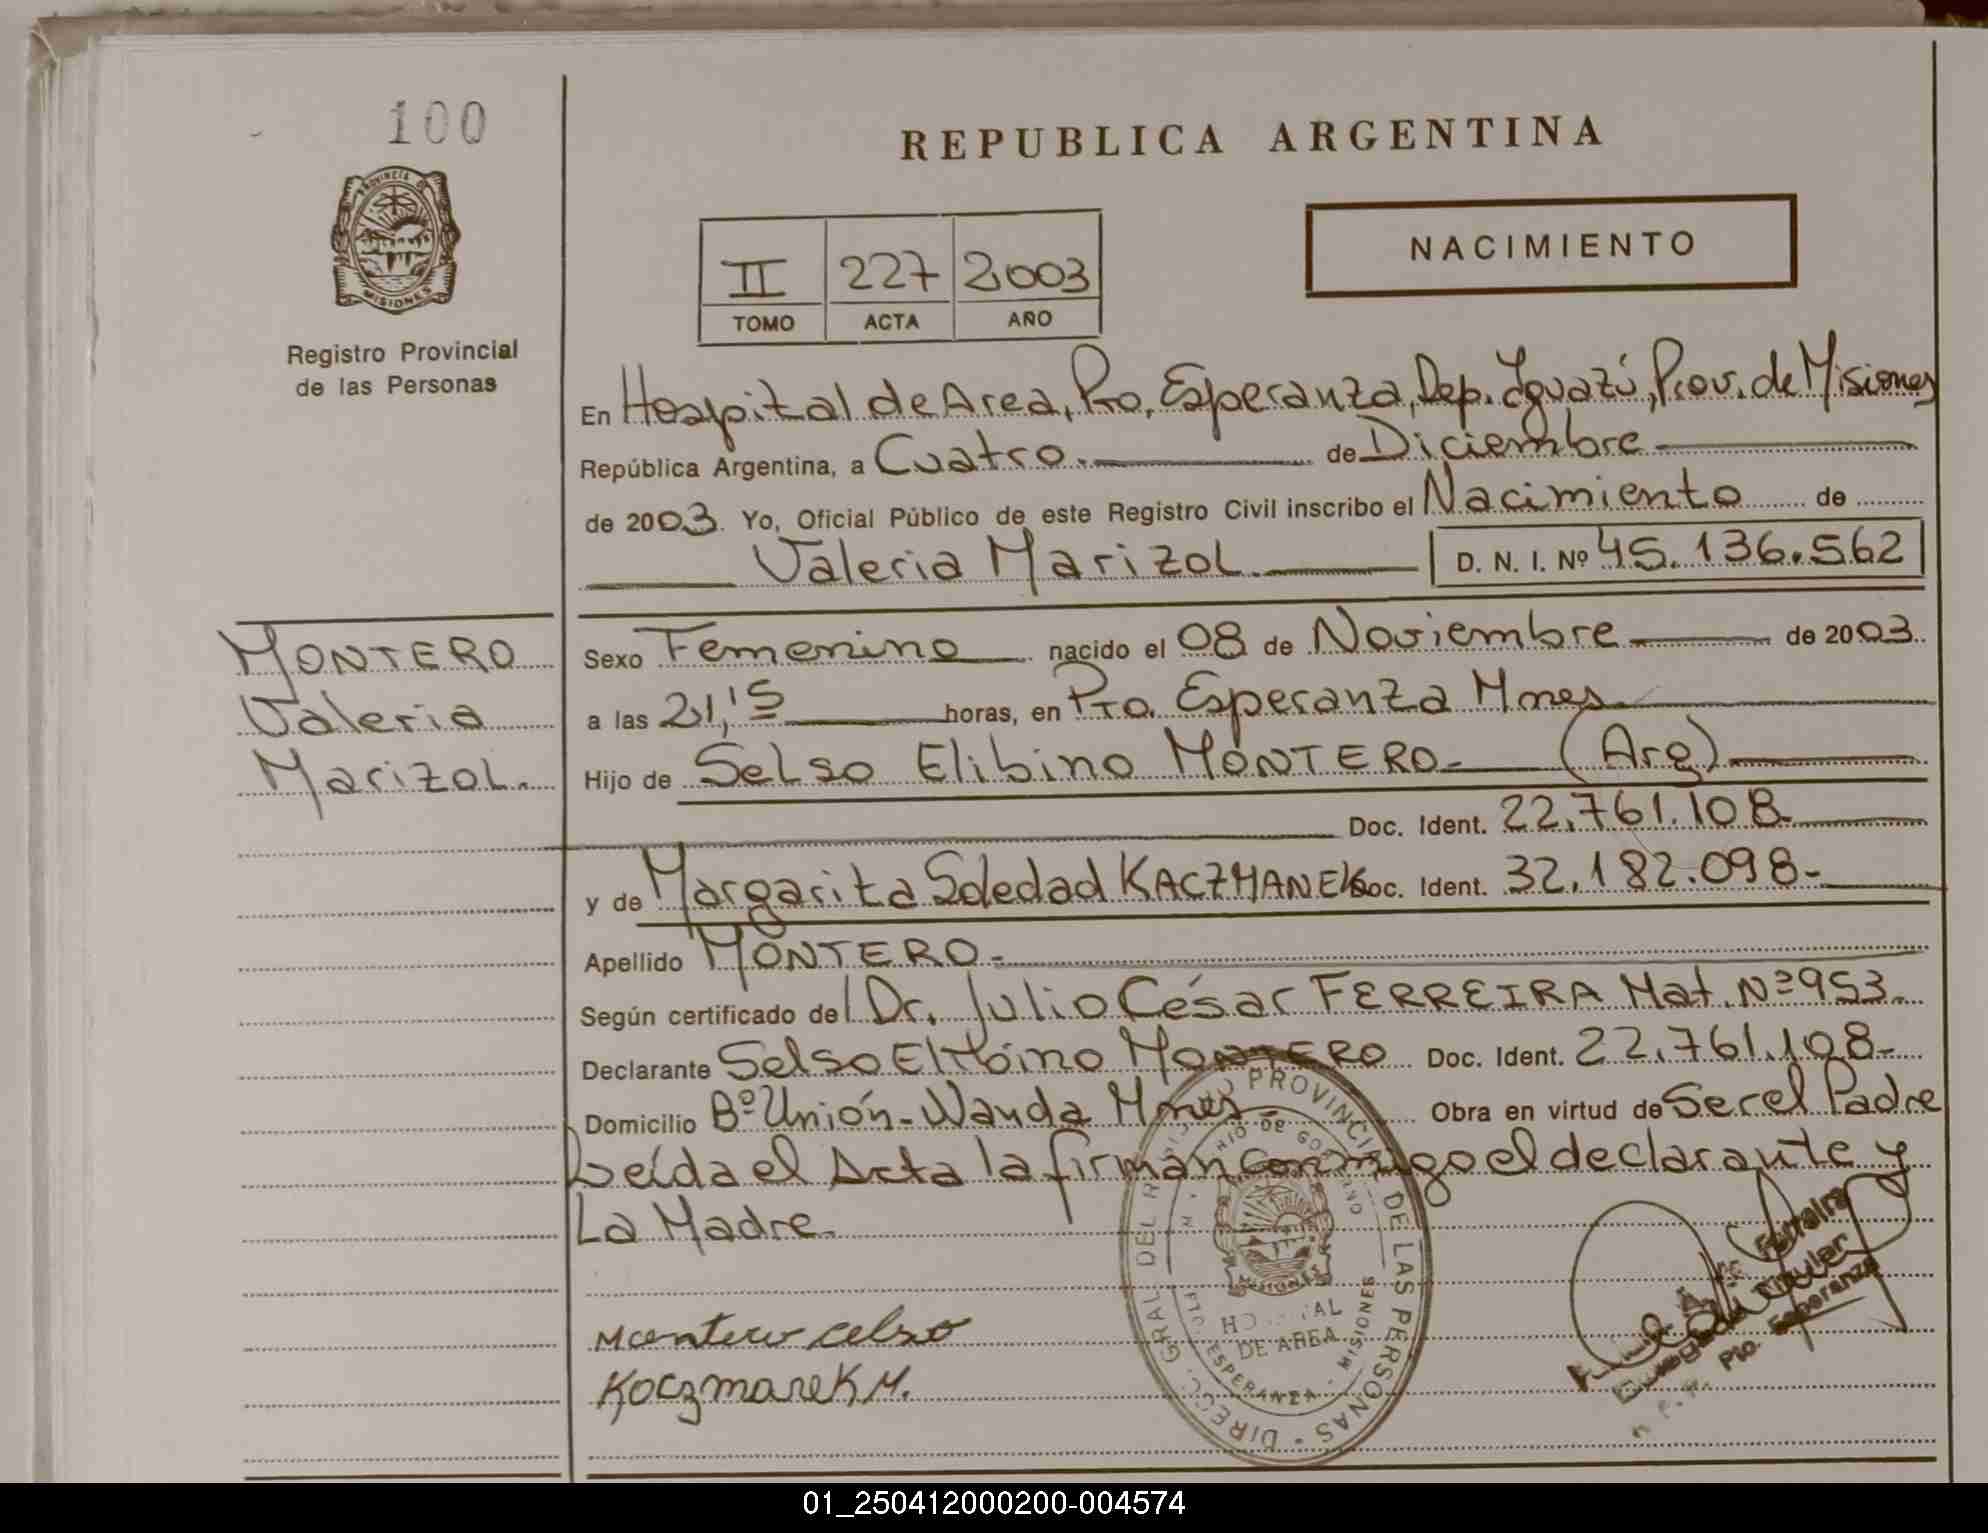 100
REPUBLICA ARGENTINA
PROVINCIA DE
MISIONES
Registro Provincial
de las Personas
II 227 2003
TOMO ACTA AÑO
NACIMIENTO
En Hospital de Area, Pto. Esperanza, Dep. Iguazú, Prov. de Misiones
República Argentina, a Cuatro. de Diciembre
de 2003. Yo, Oficial Público de este Registro Civil inscribo el Nacimiento de
Valeria Marizol. D. N. I. Nº 45.136.562
MONTERO
Valeria
Marizol.
Sexo Femenino nacido el 08 de Noviembre de 2003.
a las 21,15 horas, en Pto. Esperanza Mnes
Hijo de Selso Elibino MONTERO- (Arg)
Doc. Ident. 22.761.108-
y de Margarita Soledad KACZMANEK Doc. Ident. 32.182.098-
Apellido MONTERO-
Según certificado del Dr. Julio César FERREIRA Mat. Nº 953.
Declarante Selso Elibino MONTERO Doc. Ident. 22.761.108-
Domicilio Bº Unión - Wanda Mnes - Obra en virtud de Ser el Padre
Leída el Acta la firman conmigo el declarante y
La Madre.
DIRECC. GRAL DEL REGISTRO PROVINCIAL DE LAS PERSONAS
DE GOBIERNO
MISIONES
HOSPITAL
DE AREA
ESPERANZA - MISIONES
Montero Celso
Koczmarek M.
Ferreira
Titular
Pto. Esperanza
01_250412000200-004574